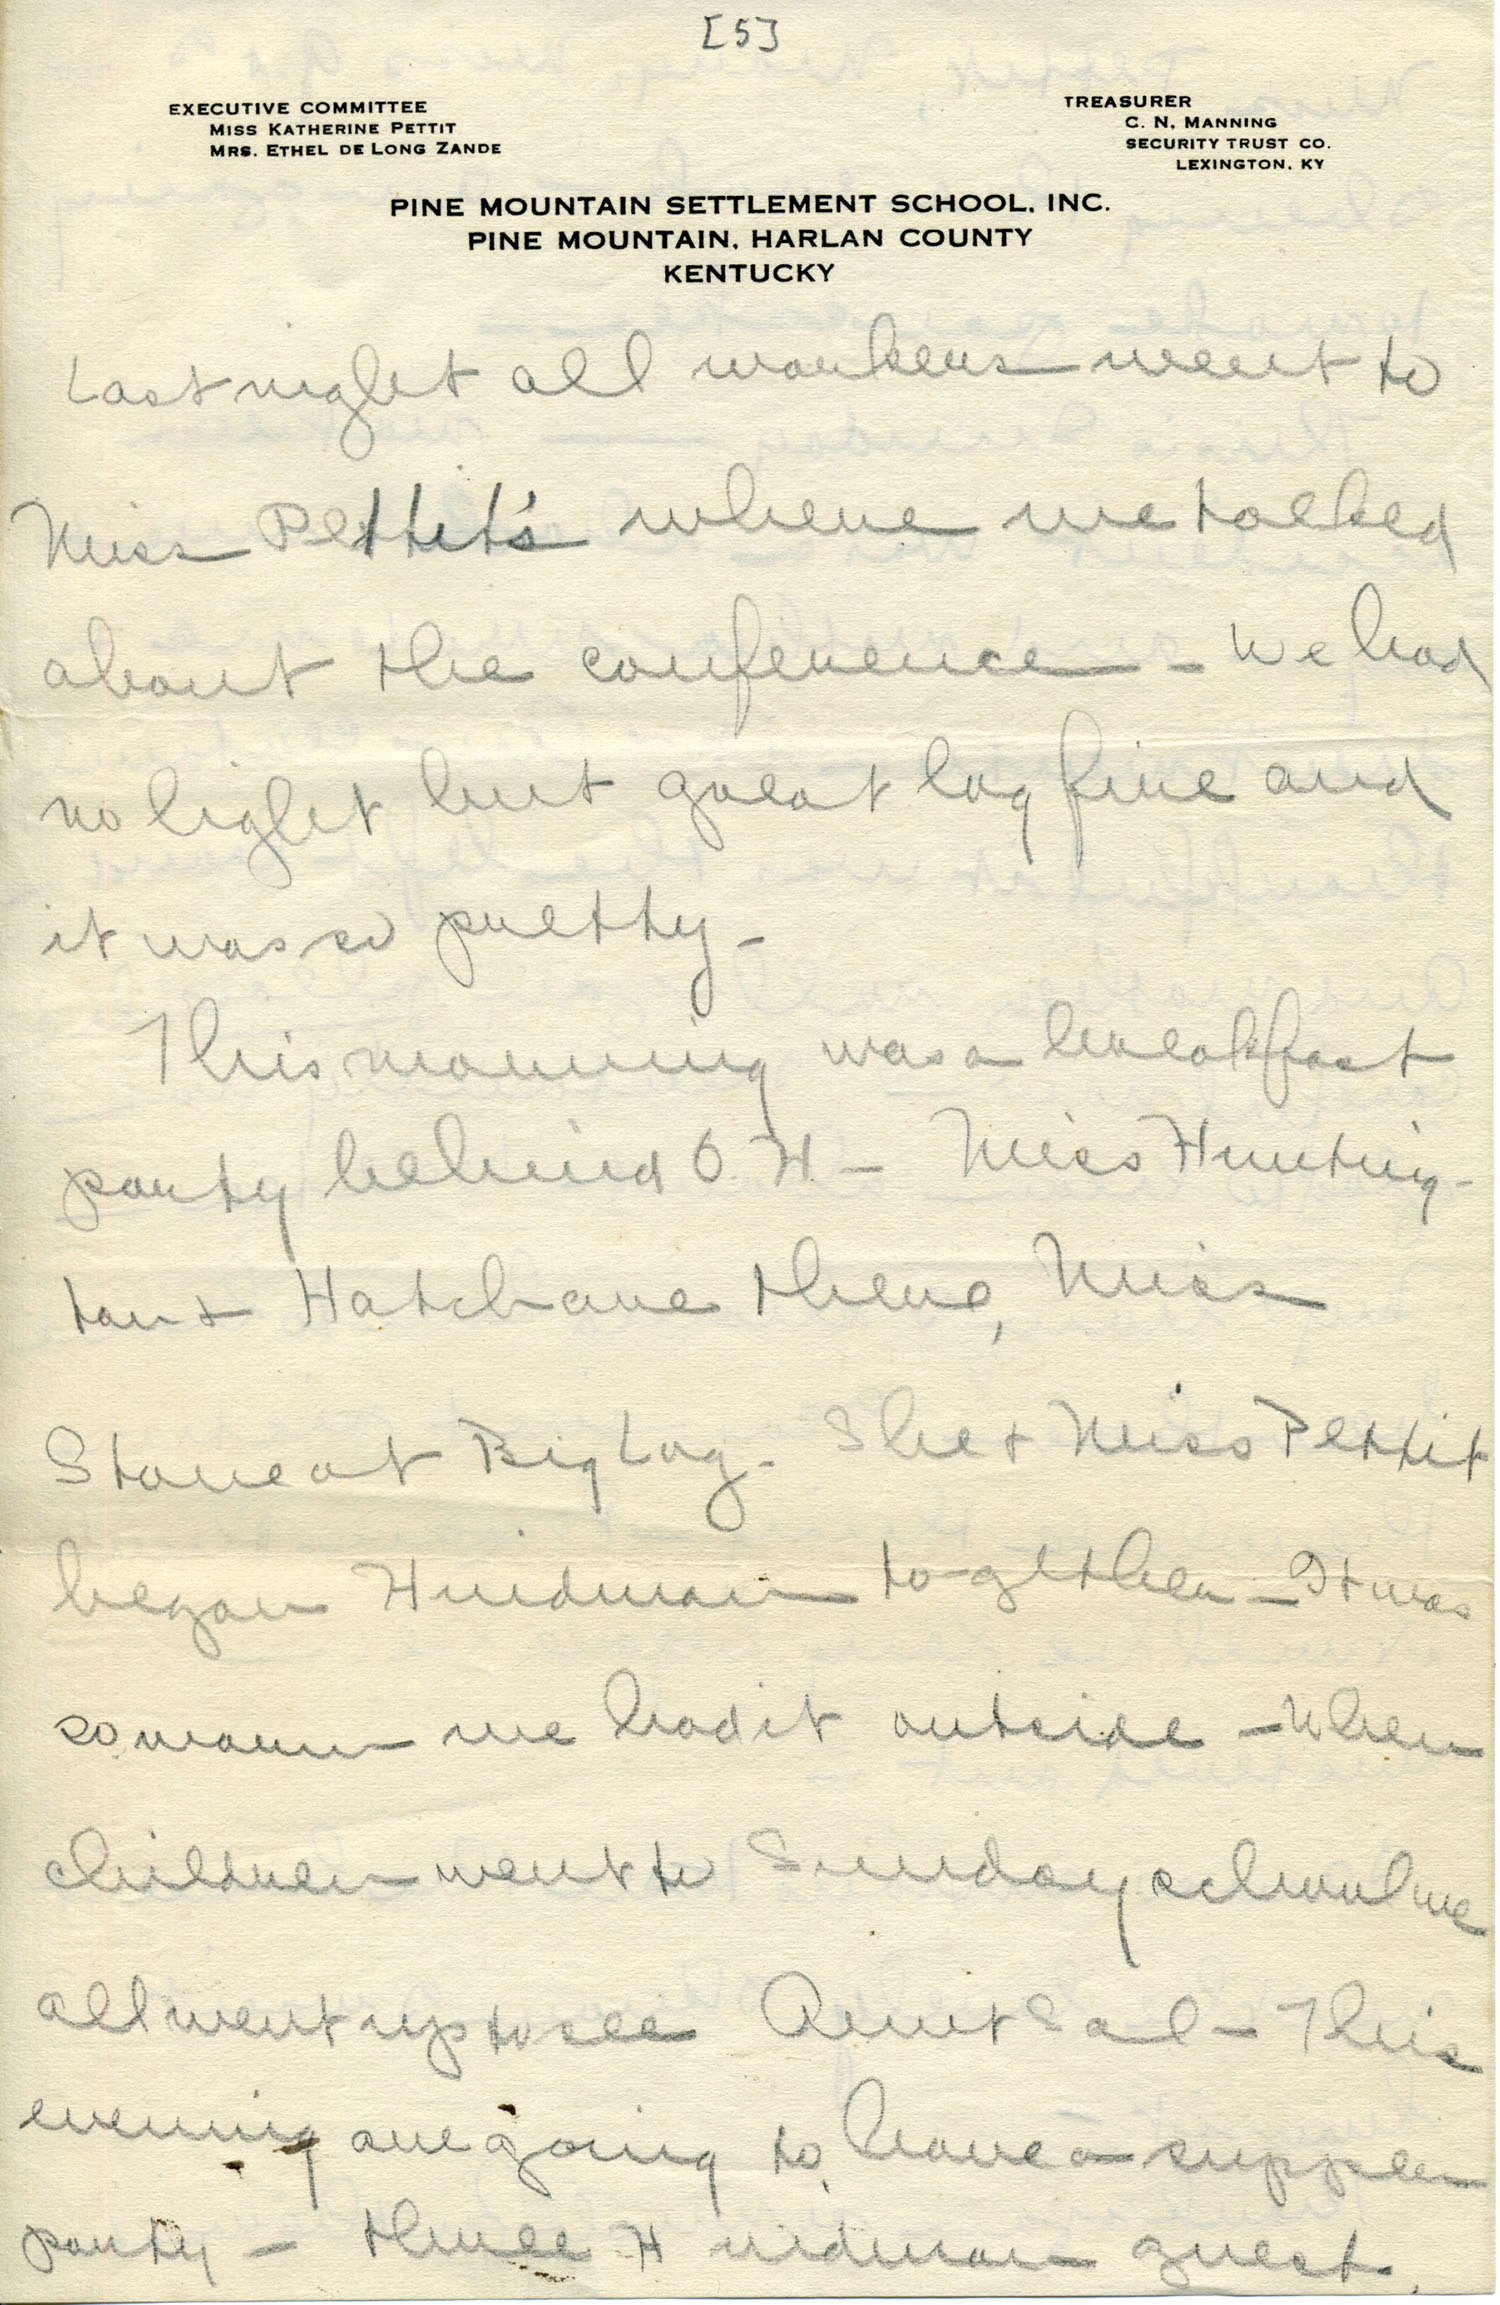 [5]
EXECUTIVE COMMITTEE
MISS KATHERINE PETTIT
MRS. ETHEL DE LONG ZANDE
TREASURER
C. N. MANNING
SECURITY TRUST CO.
LEXINGTON, KY
PINE MOUNTAIN SETTLEMENT SCHOOL, INC.
PINE MOUNTAIN, HARLAN COUNTY
KENTUCKY
Last night all workers went to
Miss Pettit's where we talked
about the conference - We had
no light but great log fire and
it was so pretty -
This morning was a breakfast
party behind O. H - Miss Hunting-
ton + Hatch are there, Miss
Stone at Big Log - She + Miss Pettit
began Hindman to-gether - It was
so warm we had it outside - When
children went to Sunday school we
all went up to see Aunt Sal - This
evening are going to have a supper
party - three Hindman guest.